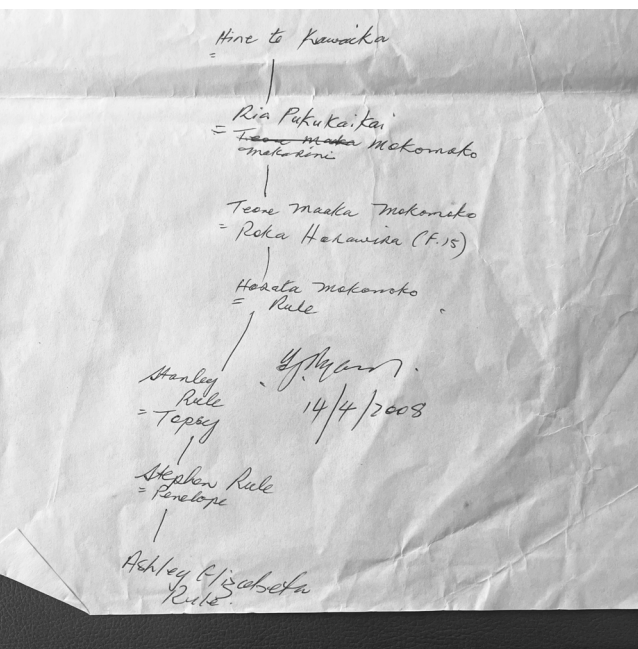 Hine te Kawaika
=
Ria Pukukaikai
= Teone Maka Mokomoko
Makarini
Teone Maaka Mokomoko
= Roka Horawira (F.15)
Horata Mokomoko
= Rule
Stanley
Rule
= Topsy
14/4/2008
Stephen Rule
= Penelope
Ashley Elizabeth
Rule.